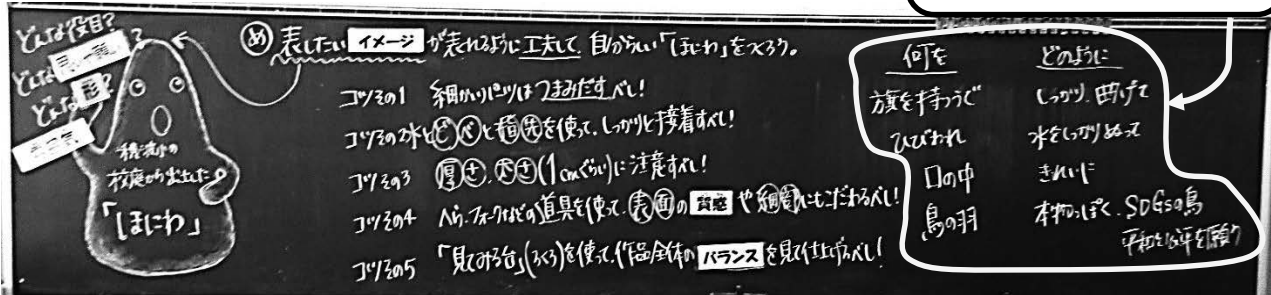 どんな役目?
どんな形?
どんな
穂流小の
校庭から出土した
「ほにわ」
め 表したいイメージが表れるように工夫して、自分らしい「ほにわ」をつくろう。
コツその1 細かいパーツはつまみだすべし!
コツその2 水とどべと指先を使って、しっかりと接着すべし!
コツその3 厚さ、太さ(1cmぐらい)に注意すべし!
コツその4 へら、フォークなどの道具を使って、表面の質感や細部にもこだわるべし!
コツその5 「見てみる台」(ろくろ)を使って、作品全体のバランスを見て仕上げるべし!
何を どのように
旗を持つうで しっかり 曲げて
ひびわれ 水をしっかりぬって
口の中 きれいに
鳥の羽 本物っぽく、SDGsの鳥
平和を